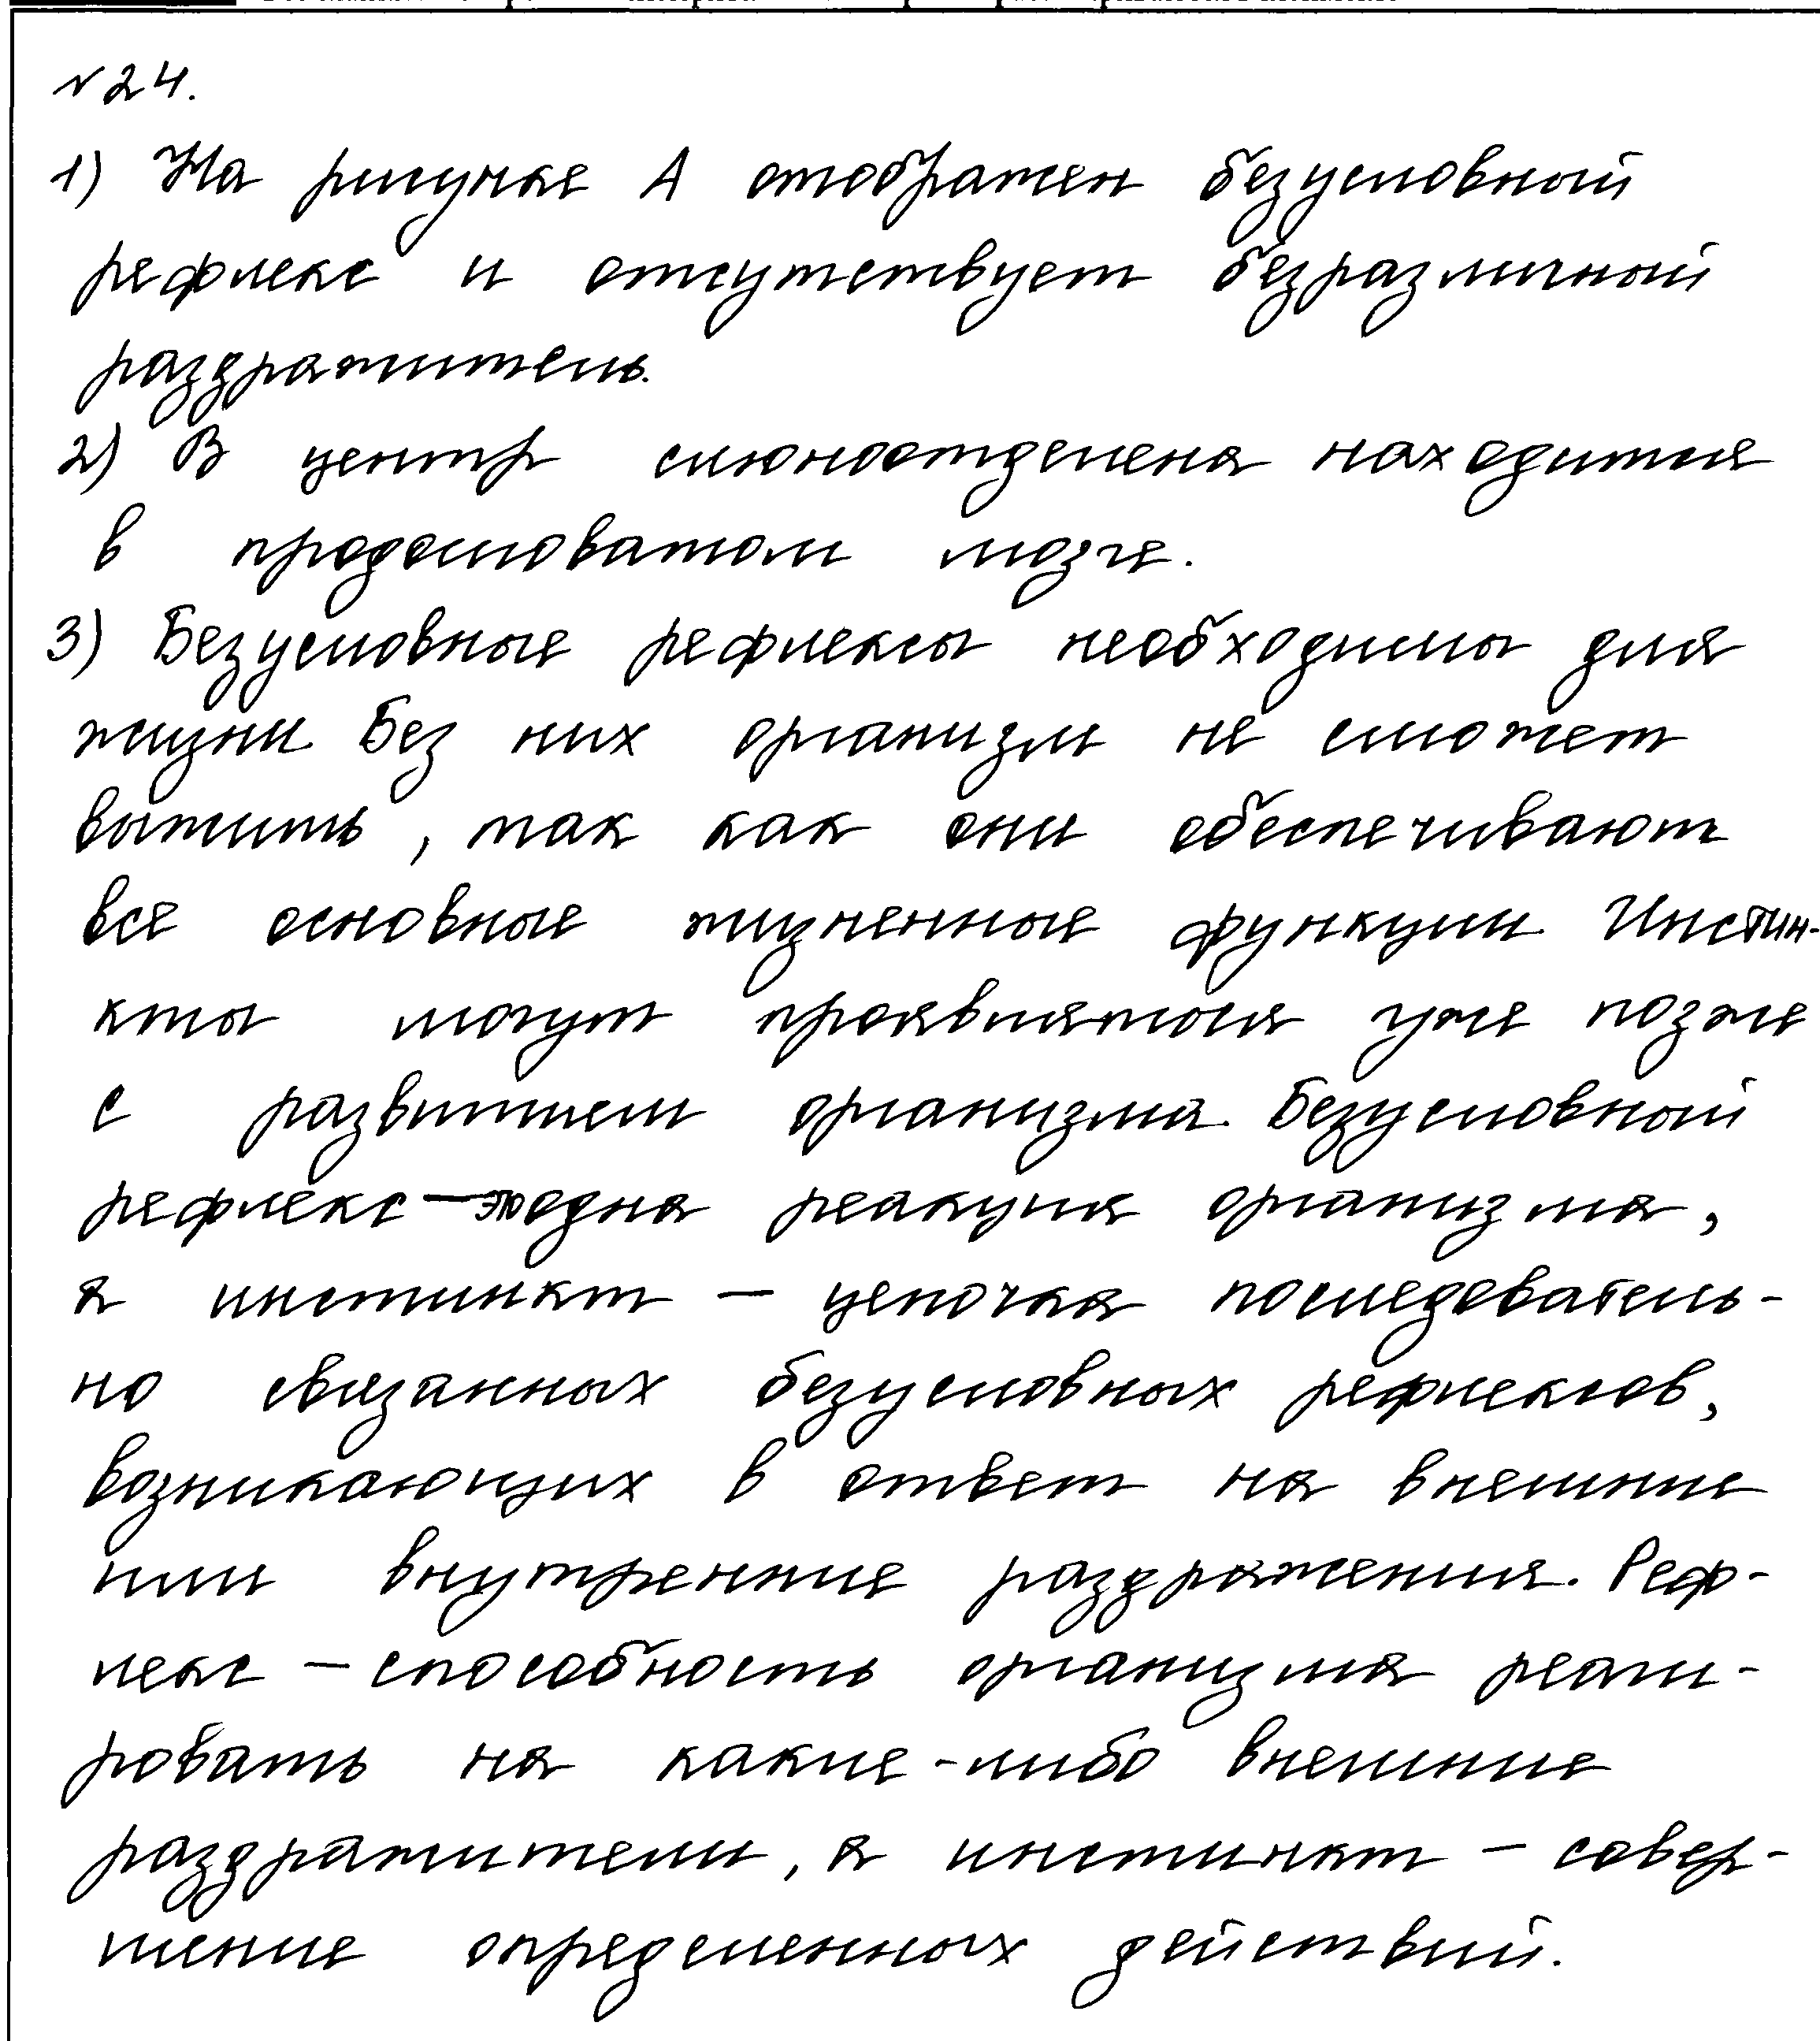 №24.
1) На рисунке А отображен безусловный
рефлекс и отсутствует безразличный
раздражитель.
2) В центр слюноотделена находится
в продолговатом мозге.
3) Безусловные рефлексы необходимы для
жизни. Без них организм не сможет
выжить, так как они обеспечивают
все основные жизненные функции. Инстин-
кты могут проявляться уже позже
с развитием организма. Безусловный
рефлекс – это одна реакция организма,
а инстинкт – цепочка последователь-
но связанных безусловных рефлексов,
возникающих в ответ на внешние
или внутренние раздражения. Реф-
лекс – способность организма реаги-
ровать на какие-либо внешние
раздражители, а инстинкт – совер-
шение определенных действий.